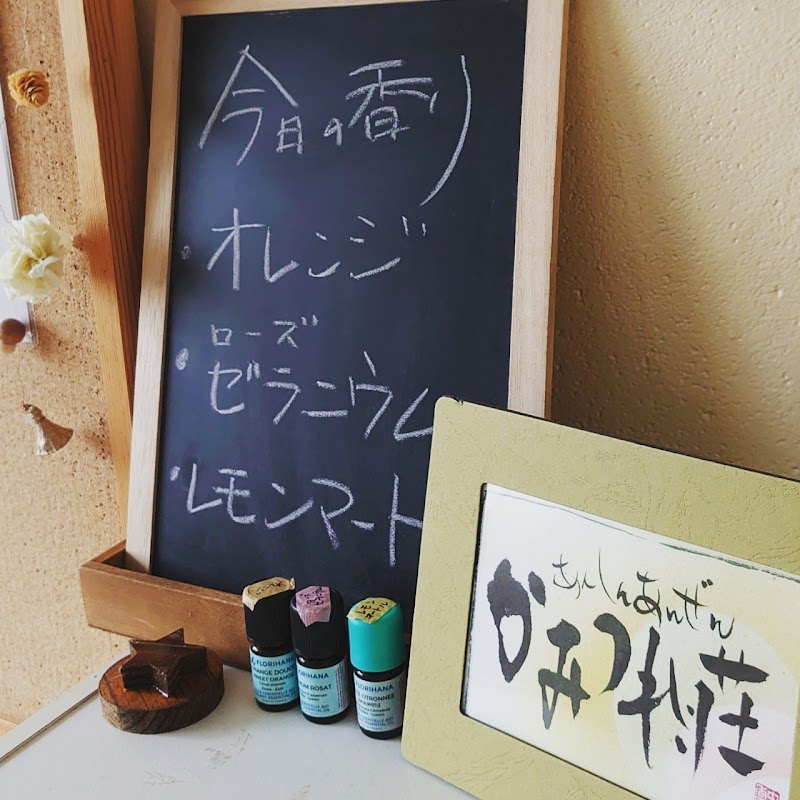 今日の香り
・オレンジ
ローズ
・ゼラニウム
・レモンマート
FLORIHANA
ORANGE DOUCE
SWEET ORANGE
ESSENTIAL OIL
ORIHANA
UM ROSAT
ESSENTIAL OIL
FLORIHANA
CITRONNÉE
あんしんあんぜん
かみつれ荘